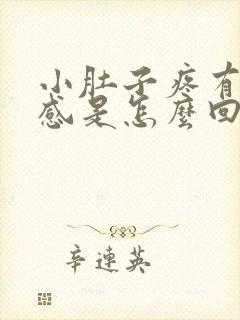 小肚子疼有
感是怎麼回
辛連英